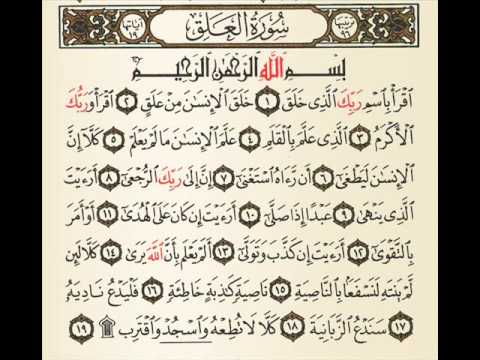 ترتيبها ٩٦ سُورَةُ الْعَلَقِ آياتها ١٩
بِسْمِ اللَّهِ الرَّحْمَٰنِ الرَّحِيمِ
اقْرَأْ بِاسْمِ رَبِّكَ الَّذِي خَلَقَ ١ خَلَقَ الْإِنسَانَ مِنْ عَلَقٍ ٢ اقْرَأْ وَرَبُّكَ
الْأَكْرَمُ ٣ الَّذِي عَلَّمَ بِالْقَلَمِ ٤ عَلَّمَ الْإِنسَانَ مَا لَمْ يَعْلَمْ ٥ كَلَّا إِنَّ
الْإِنسَانَ لَيَطْغَىٰ ٦ أَن رَّءَاهُ اسْتَغْنَىٰ ٧ إِنَّ إِلَىٰ رَبِّكَ الرُّجْعَىٰ ٨ أَرَءَيْتَ
الَّذِي يَنْهَىٰ ٩ عَبْدًا إِذَا صَلَّىٰ ١٠ أَرَءَيْتَ إِن كَانَ عَلَى الْهُدَىٰ ١١ أَوْ أَمَرَ
بِالتَّقْوَىٰ ١٢ أَرَءَيْتَ إِن كَذَّبَ وَتَوَلَّىٰ ١٣ أَلَمْ يَعْلَم بِأَنَّ اللَّهَ يَرَىٰ ١٤ كَلَّا لَئِن
لَّمْ يَنتَهِ لَنَسْفَعًا بِالنَّاصِيَةِ ١٥ نَاصِيَةٍ كَاذِبَةٍ خَاطِئَةٍ ١٦ فَلْيَدْعُ نَادِيَهُ
١٧ سَنَدْعُ الزَّبَانِيَةَ ١٨ كَلَّا لَا تُطِعْهُ وَاسْجُدْ وَاقْتَرِب ۩ ١٩